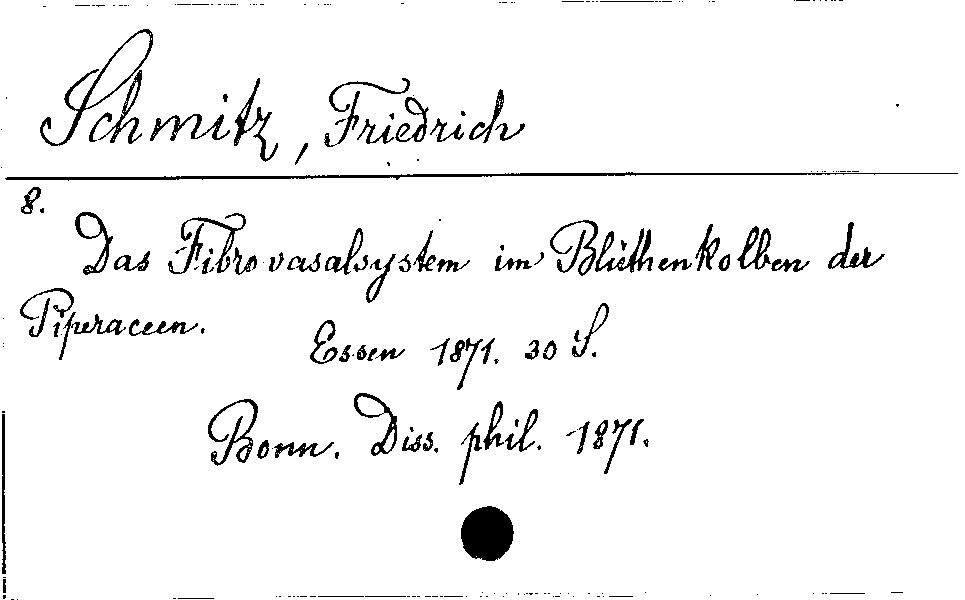 Schmitz, Friedrich
8.
Das Fibrovasalsystem im Blüthenkolben der
Piperaceen.
Essen 1871. 30 S.
Bonn. Diss. phil. 1871.